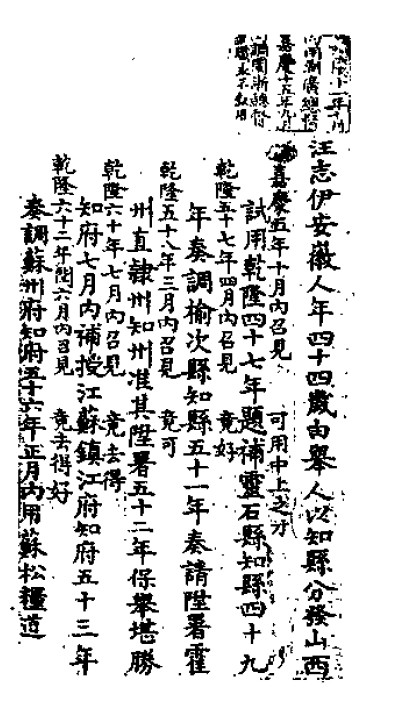 十一年十月
湖廣總督
嘉慶十五年九月
調閩浙總督
永不敘用
汪志伊安徽人年四十四歲由舉人以知縣分發山西
嘉慶五年十月內召見 可用中上之才
試用乾隆四十七年題補靈石縣知縣四十九
乾隆五十七年四月內召見 竟好
年奏調榆次縣知縣五十一年奏請陞署霍
乾隆五十八年三月內召見 竟可
州直隸州知州准其陞署五十二年保舉堪勝
乾隆六十年七月內召見 竟去得
知府七月內補授江蘇鎮江府知府五十三年
乾隆六十二年閏六月內召見 竟去得好
奏調蘇州府知府五十六年正月內用蘇松糧道